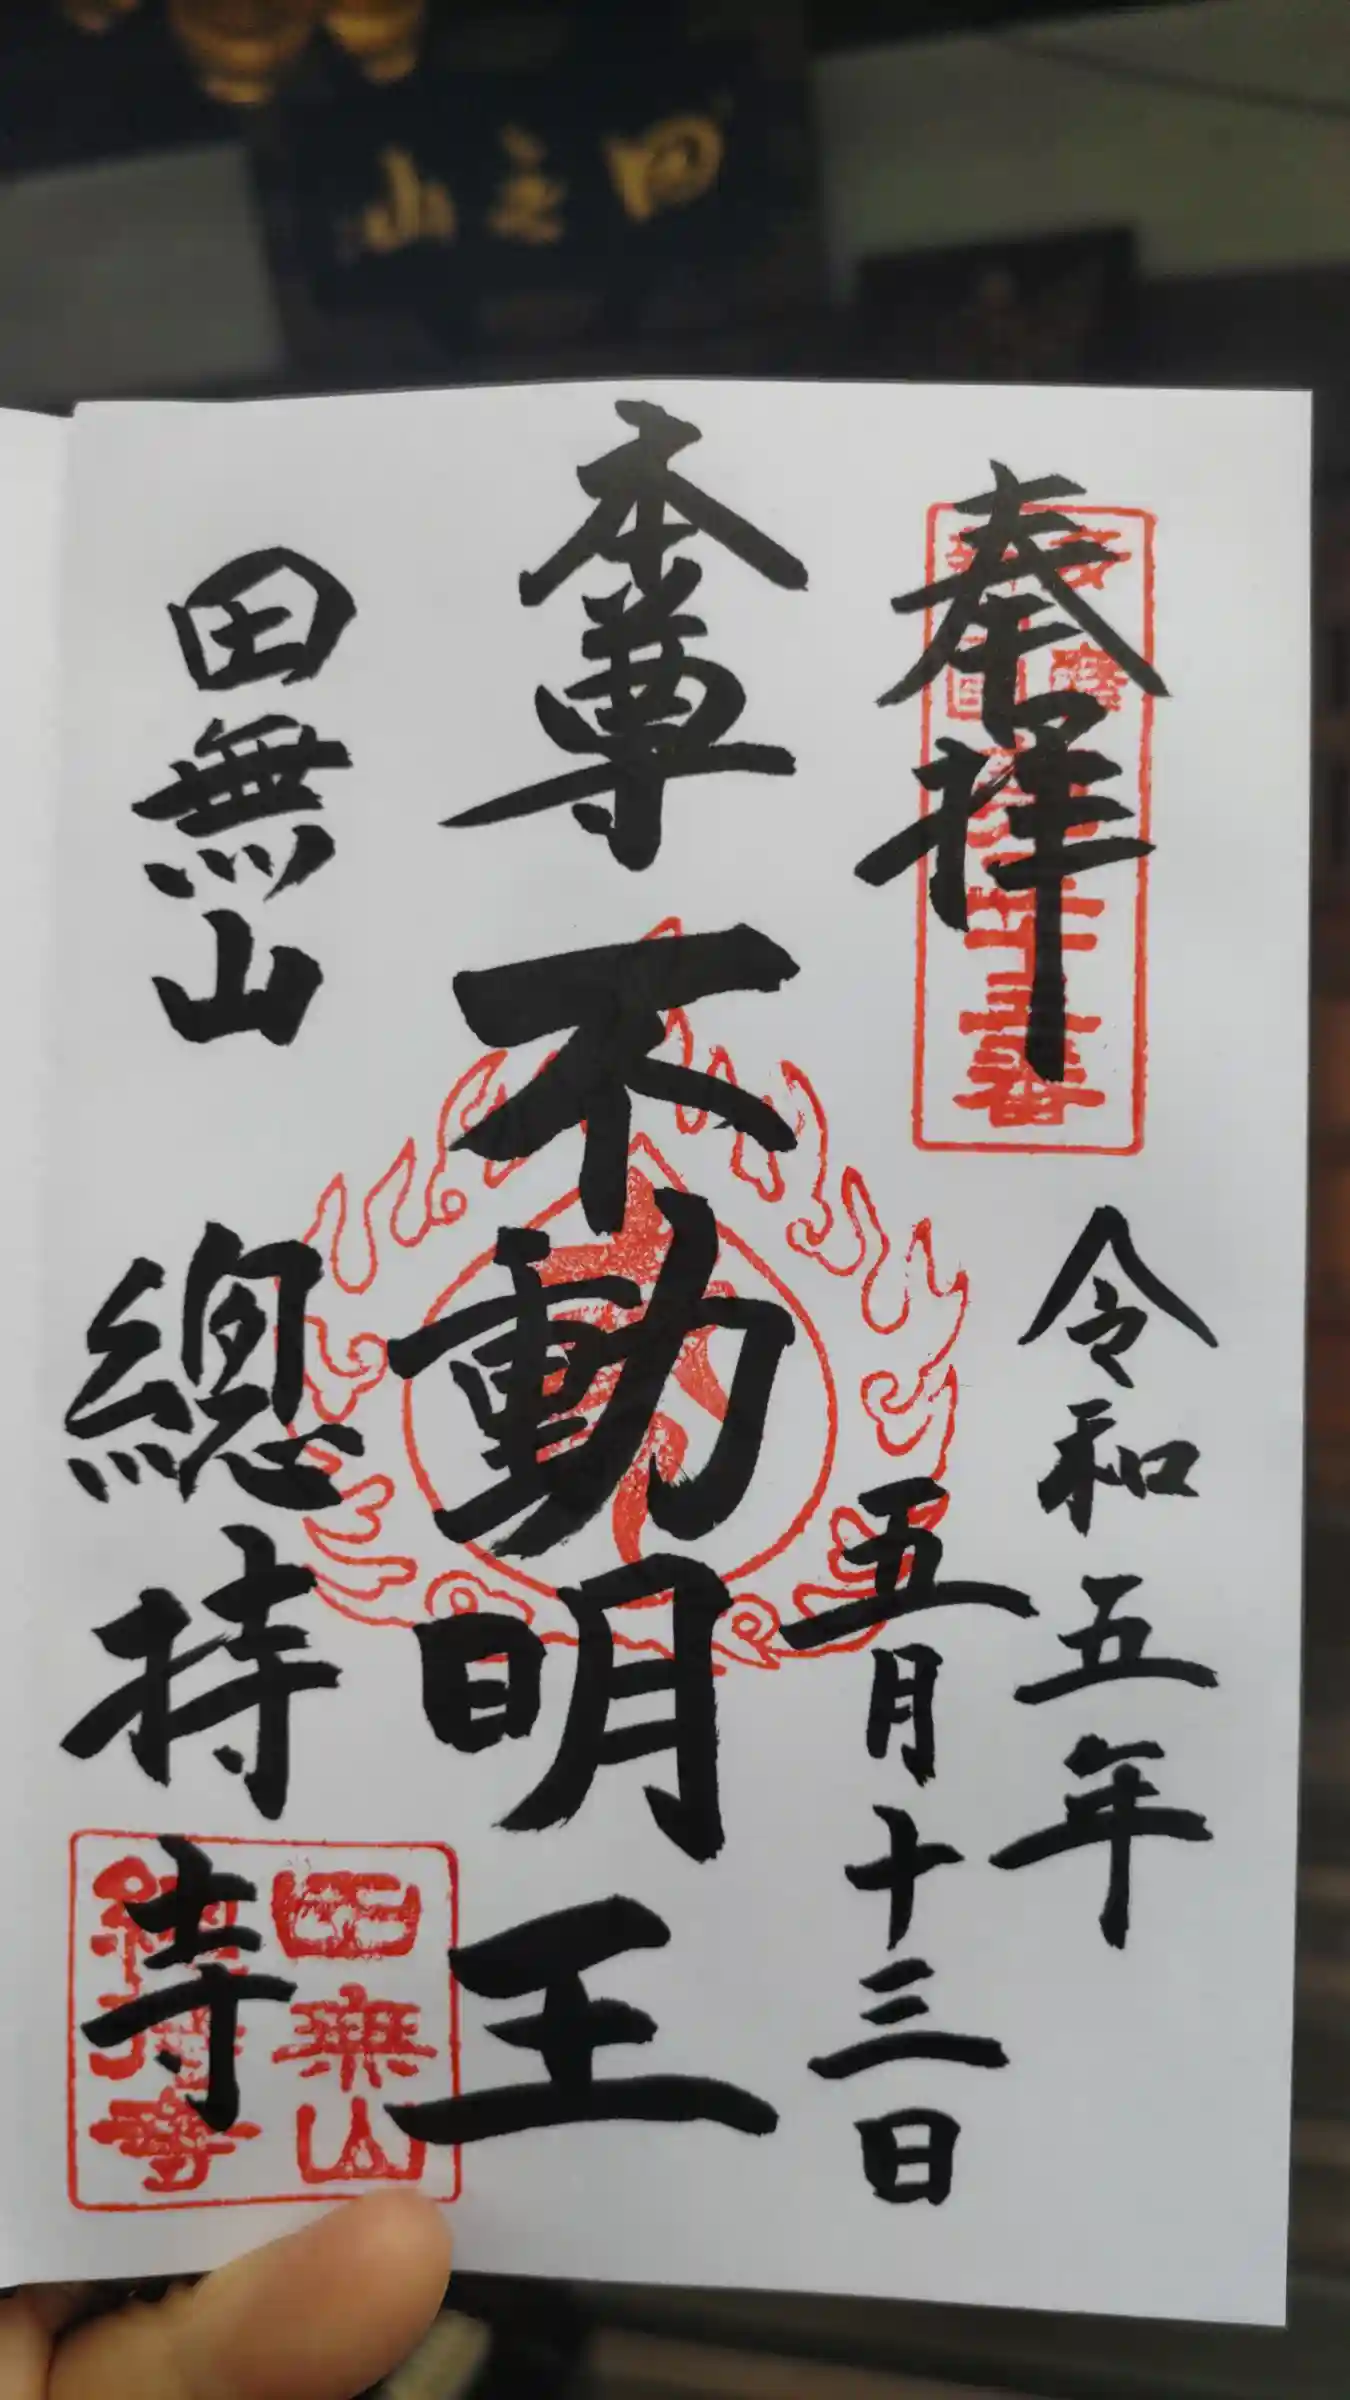 奉拝
令和五年
五月十三日
本尊 不動明王
田無山
總持寺
田無山
總持寺
田無山